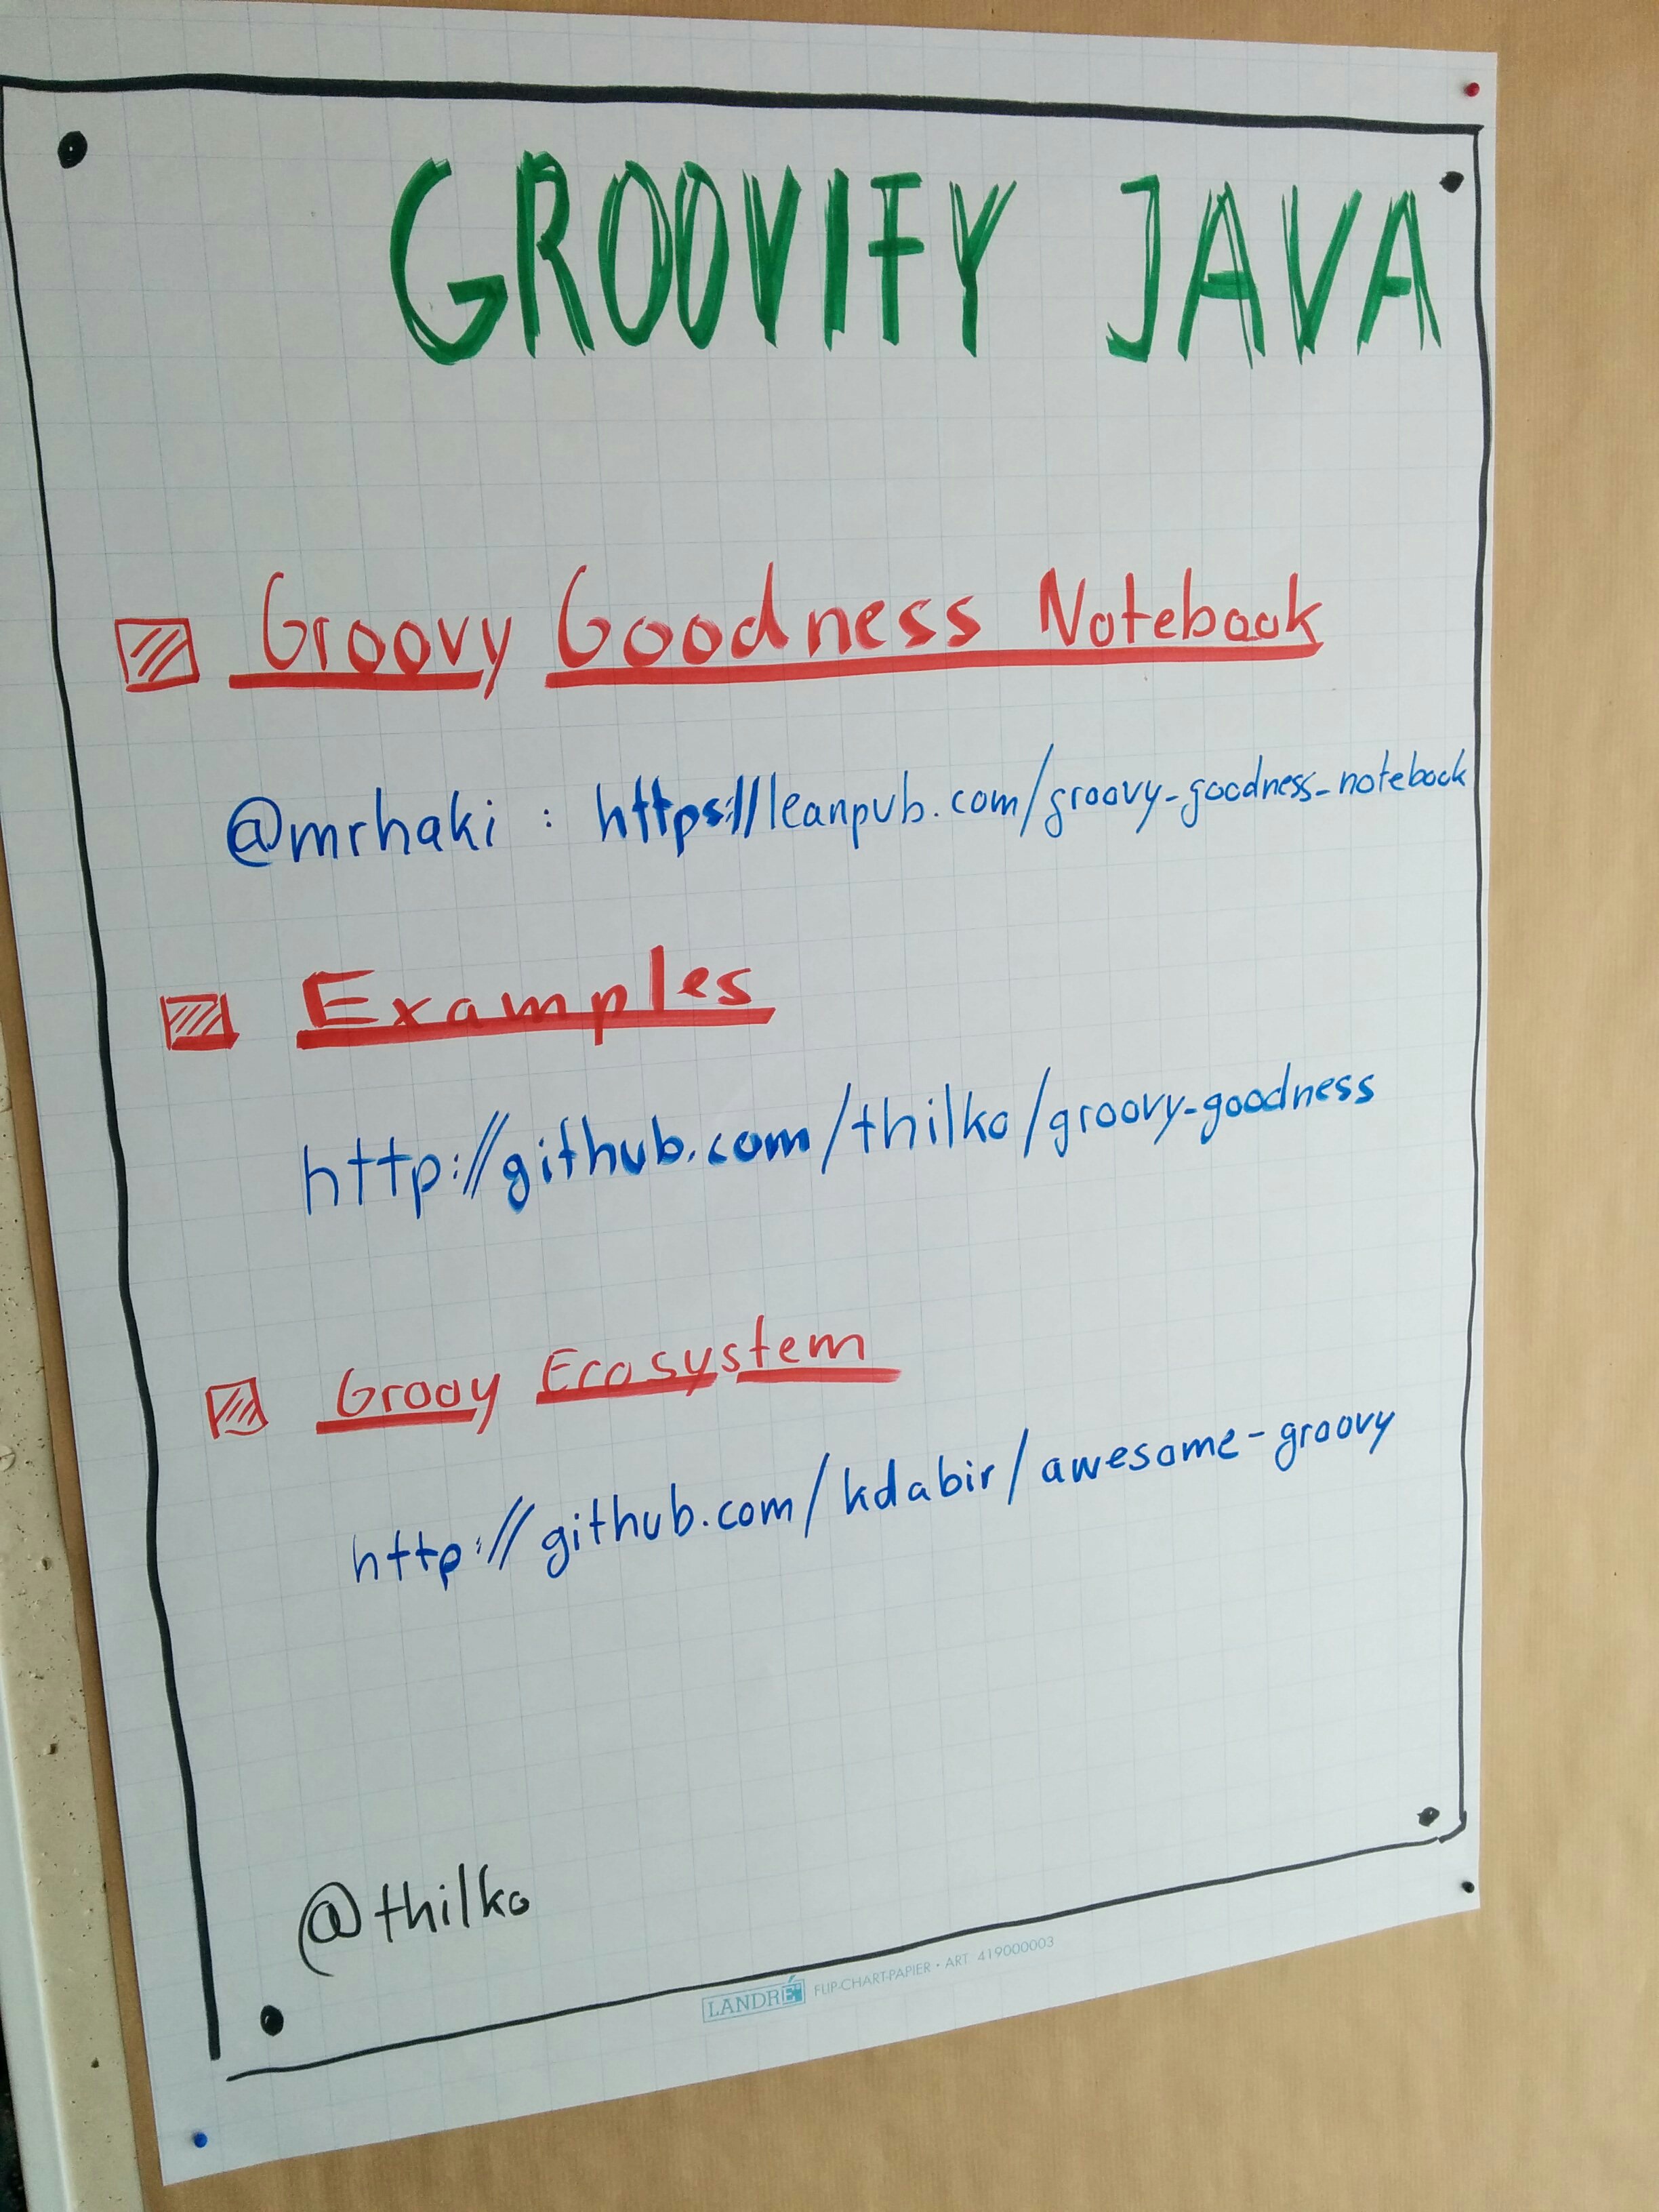 GROOVIFY JAVA
Groovy Goodness Notebook
@mrhaki : https://leanpub.com/groovy-goodness-notebook
Examples
http://github.com/thilko/groovy-goodness
Grooy Ecosystem
http://github.com/kdabir/awesome-groovy
@thilko
LANDRÉ FLIP-CHART-PAPIER • ART. 419000003